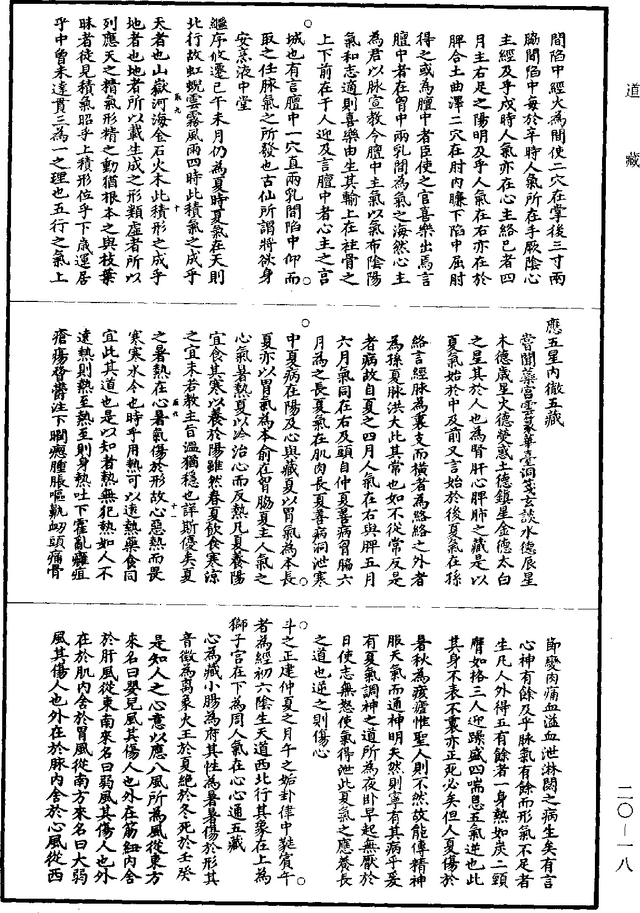 道藏
間陷中經火為間使二穴在掌後三寸兩
筋間陷中每於午時人氣所在手厥陰心
主經及乎戌時人氣亦在心主絡已者四
月主右足之陽明及乎人氣在右亦在於
脾合土曲澤二穴在肘內臁下陷中屈肘
得之或為膻中者臣使之官喜樂出焉言
膻中者在胷中兩乳間為氣之海然心主
為君以脉宣教令膻中主氣以氣布陰陽
氣和志適則喜樂由生其輸上在柱骨之
上下前在于人迎及言膻中者心主之宮
城也有言膻中一穴直兩乳間陷中仰而
取之任脉氣之所發也古仙所謂將欲身
安烹液中堂
繼序攸遷已午未月仍為夏時夏氣在天則
北行故虹蜺雲霧風雨四時此積氣之成乎
天者也山嶽河海金石火木此積形之成乎
地者也地者所以載生成之形類虛者所以
列應天之精氣形精之動猶根本之與枝葉
昧者從見積氣昭乎上積形位乎下歲運居
乎中曾未達貫三為一之理也五行之氣上
應五星內徹五藏
嘗聞藥宮雲篆華臺洞笈玄談水德辰星
木德歲星火德熒惑土德鎮星金德太白
之星其於人也為腎肝心脾肺之藏是以
夏氣始於中及前又言始於後夏氣在孫
絡言經脉為裏支而橫者為絡絡之外者
為孫夏脉洪大此其常也如不從常反是
者病故自夏之四月人氣在右與脾五月
六月氣同在右及頭自仲夏善病胷脇六
月為之長夏氣在肌肉長夏善病洞泄寒
中夏病在陽及心與藏夏以胃氣為本長
夏亦以胃氣為本俞在胷脇夏主人氣之
心氣暑熱夏以冷治心而反熱凡夏養陽
宜食其寒以養於陽雖然春夏飲食寒涼
之宜未若教主旨溫猶穩也詳斯優矣夏
之暑熱在心暑氣傷於形故心惡熱而畏
寒寒水令也時乎用熱可以遠熱藥食同
宜此其道也是以知者熱無犯熱如人不
遠熱則熱至熱至則身熱吐下霍亂癰疽
瘡瘍瞀鬱注下瞤瘛腫脹嘔鼽衂頭痛骨
節變肉痛血溢血泄淋閟之病生矣有言
心神有餘及乎脉氣有餘而形氣不足者
生凡人外得五有餘者一身熱如炭二頸
膺如格三人迎躁盛四喘息五氣逆也此
其身不表不裏亦正死必矣但人夏傷於
暑秋為痎瘧惟聖人則不然故能傳精神
服天氣而通神明天然則寧有其病乎爰
有夏氣調神之道所為夜卧早起無厭於
日使志無怒使氣得泄此夏氣之應養長
之道也逆之則傷心
斗之正建仲夏之月午之姤卦律中蕤賓午
者為經初六陰生天道西北行其象在上為
獅子宮在下為周人氣在心心通五藏
心為臟小腸為府其性為暑暑傷於形其
音徵為离象火王於夏絕於冬死於壬癸
是知人之心意以應八風所為風從東方
來名曰嬰兒風其傷人也外在筋紐內舍
於肝風從東南來名曰弱風其傷人也外
在於肌內舍於胃風從南方來名曰大弱
風其傷人也外在於脉內舍於心風從西
二〇—一八